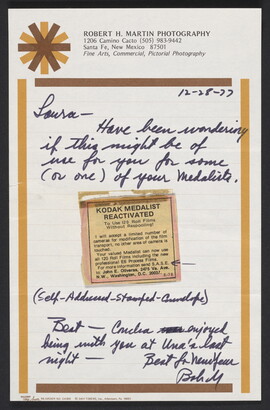 ROBERT H. MARTIN PHOTOGRAPHY
1206 Camino Cacto (505) 983-9442
Santa Fe, New Mexico 87501
Fine Arts, Commercial, Pictorial Photography
12-28-77
Laura-
Have been wondering
if this might be of
use for you for some
(or one) of your Medalists.
KODAK MEDALIST
REACTIVATED
To Use 120 Roll Films
Without Respooling!
I will accept a limited number of
cameras for modification of the film
transport, no other area of camera is
touched.
Your valued Medalist can now use
all 120 Roll Films including the new
professional Films.
For more information send S.A.S.E.
to John E. Oliveras,
N.W., Washington, D.C.
(Self-Addressed-Stamped-Envelope)
Best - enjoyed
being with you at Una's last
night - Best for New Year